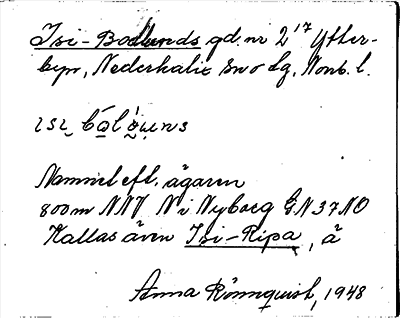 Isi-Bodlunds gd. nr 2¹⁷ Ytter-
byn, Nederkalix sn o lg, Nonb. l.
Namnet eft. ägaren
800 m NNV N i Nyborg GN 37 NO
Kallas även Isi-Kipa, å
Anna Rönnquist, 1948